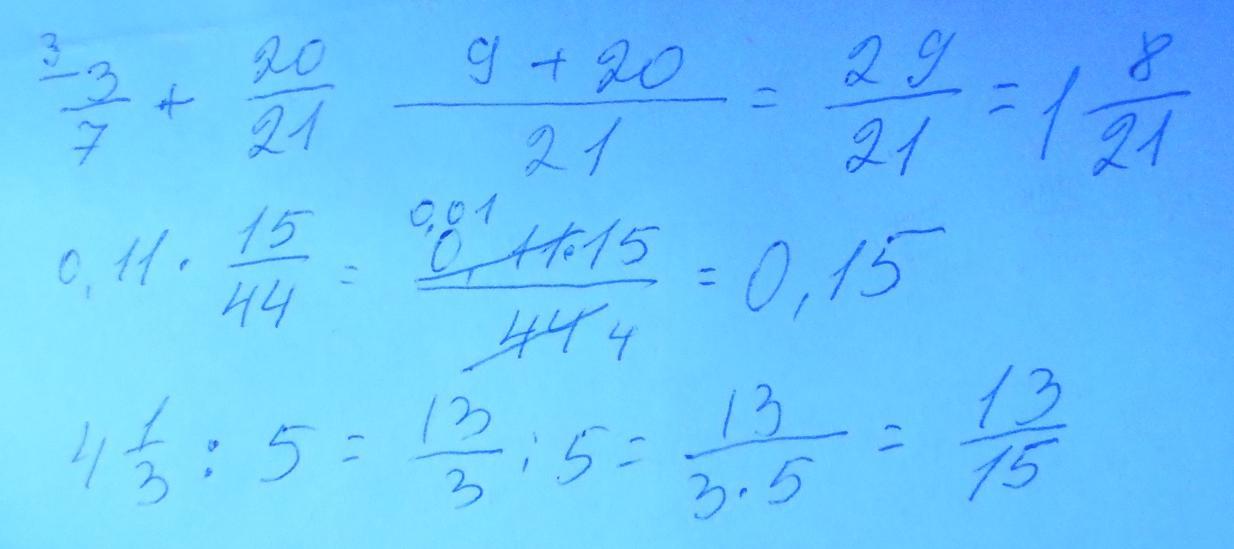 3/ 3/7 + 20/21 9 + 20/21 = 29/21 = 1 8/21
0,11 · 15/44 = 0,01 0,11·15/44 4 = 0,15
4 1/3 : 5 = 13/3 : 5 = 13/3·5 = 13/15